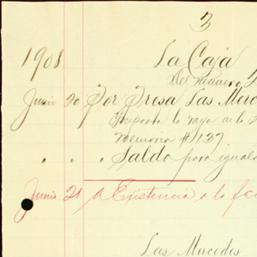 3
1908 La Caja
Del
Junio 20 Por Presa Las Merc
Importe lo
Memoria # 137
" " " Saldo para iguala
Junio 21 A Existencia a la fec
Las Mercedes